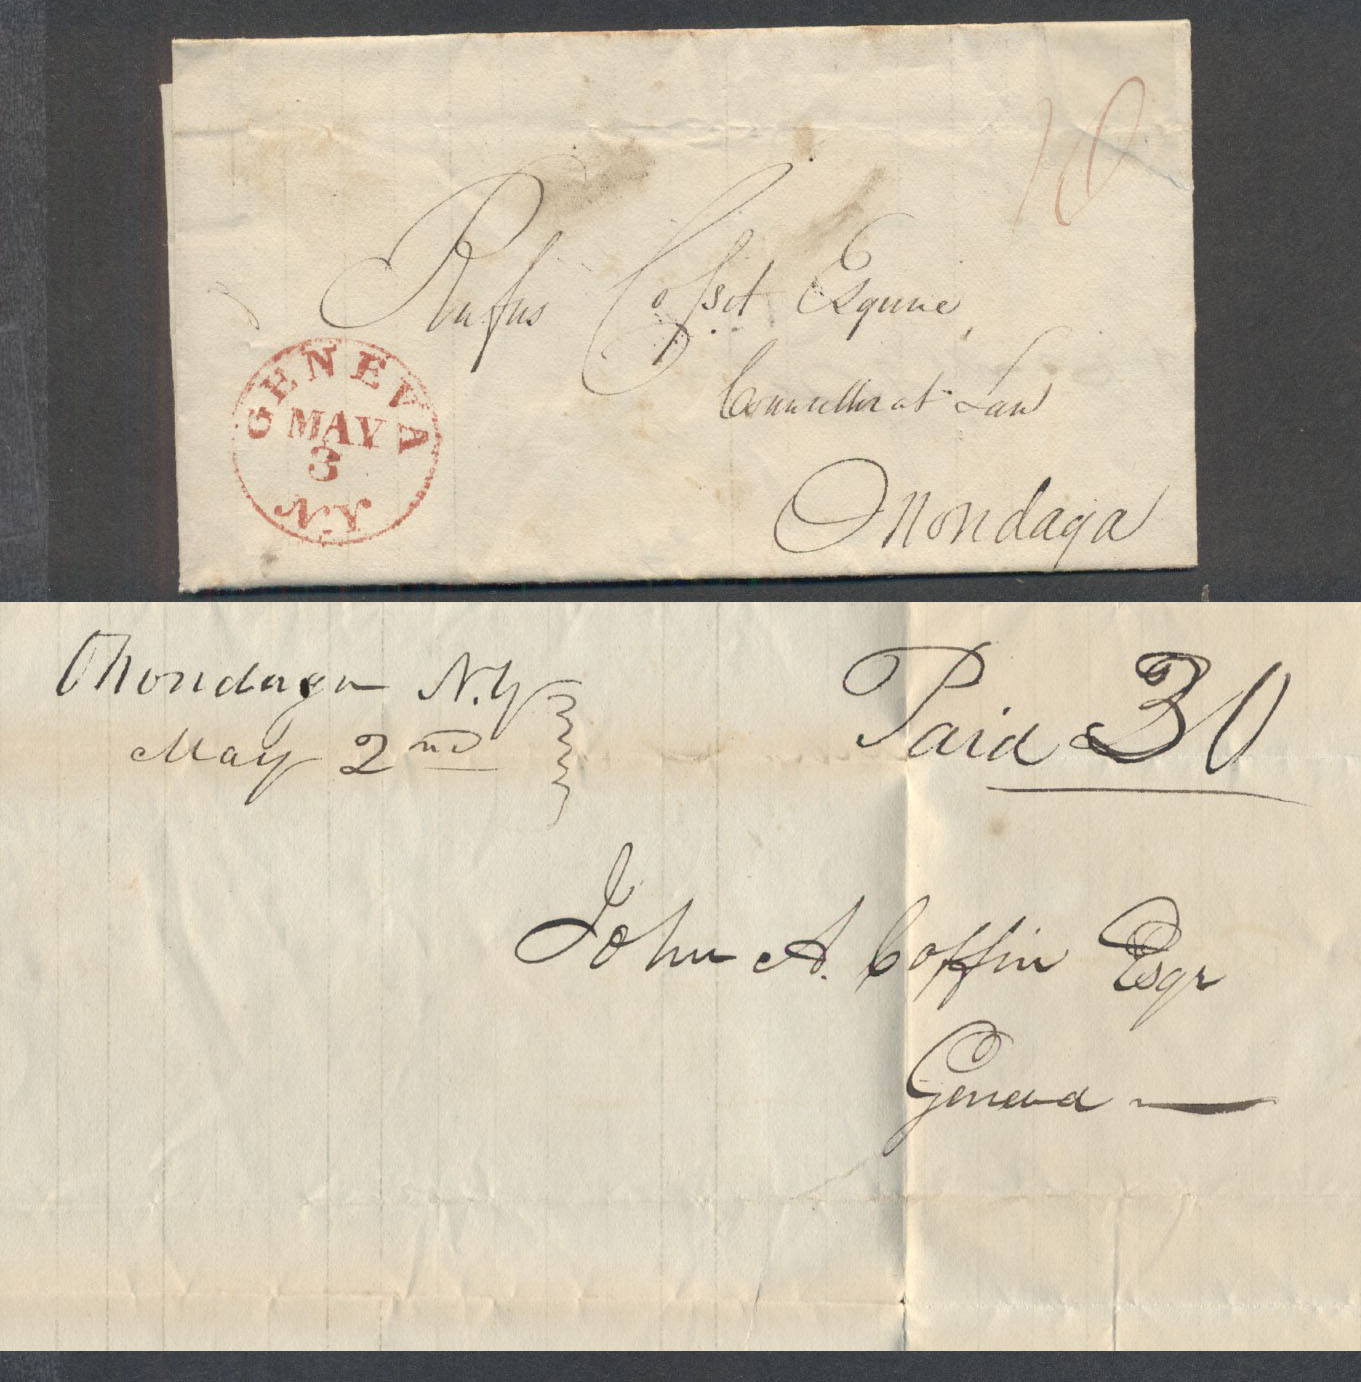 10
Rufus Coſsit Esquire
Counsellor at Law
Onondaga
GENEVA
MAY
3
N.Y
Onondaga N.Y
May 2nd
Paid 30
John A. Coffin Esqr
Geneva